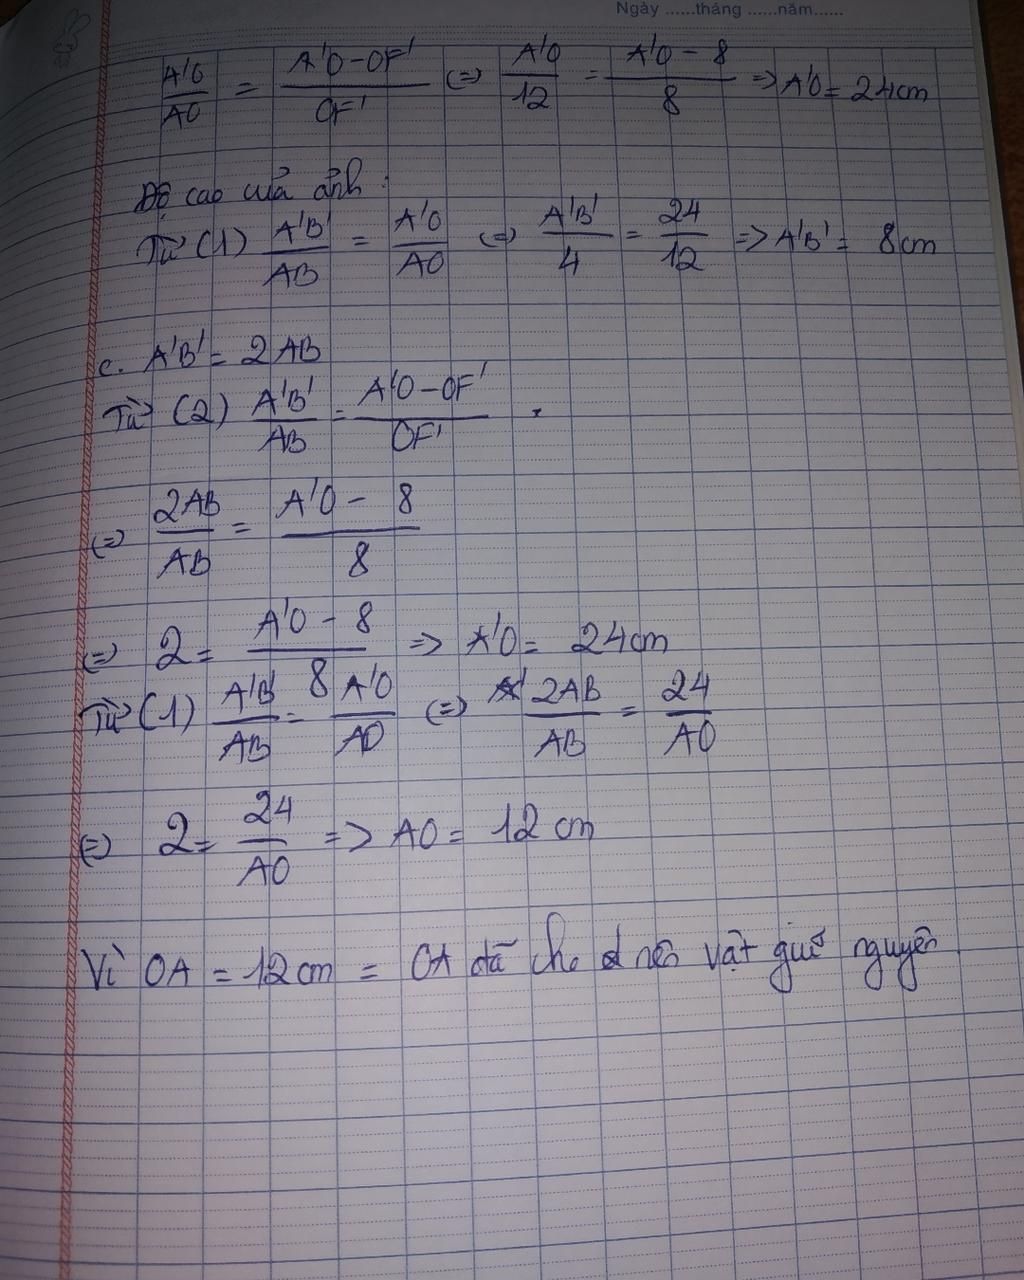 Ngày ......tháng ......năm......
A'O/AO = (A'O-OF')/OF' (=) A'O/12 = (A'O - 8)/8 => A'O = 24cm
Độ cao của ảnh :
Từ (1) A'B'/AB = A'O/AO (=) A'B'/4 = 24/12 => A'B' = 8cm
c. A'B' = 2AB
Từ (2) A'B'/AB = (A'O-OF')/OF' .
(=) 2AB/AB = (A'O - 8)/8
(=) 2 = (A'O - 8)/8 => A'O = 24cm
Từ (1) A'B'/AB = A'O/AO (=) 2AB/AB = 24/AO
(=) 2 = 24/AO => AO = 12 cm
Vì OA = 12cm = OA đã cho nên vật giữ nguyên